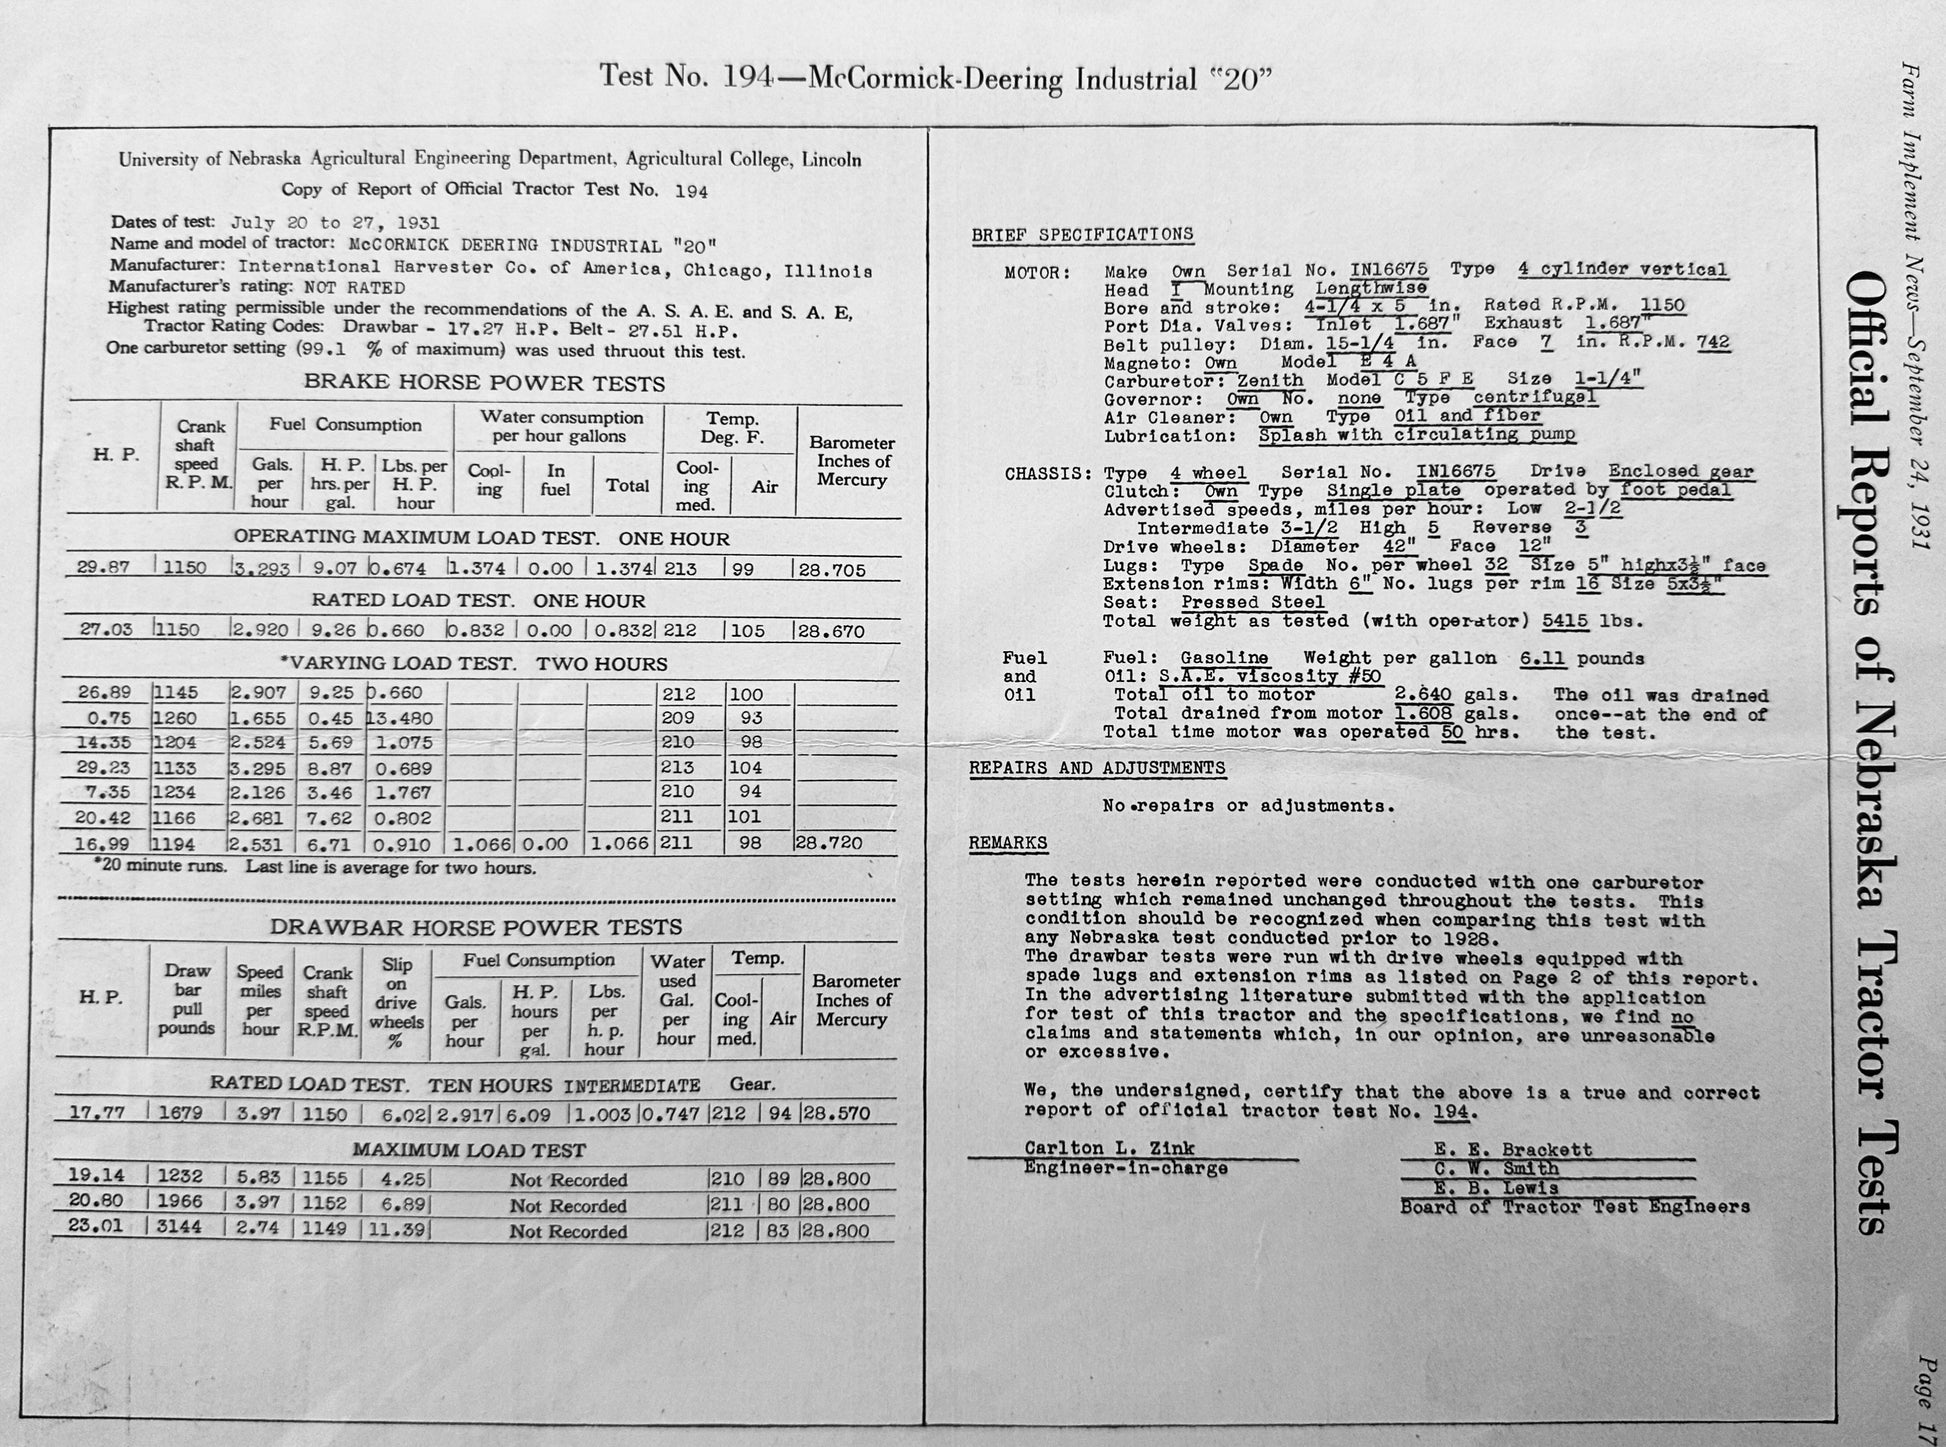 Test No. 194—McCormick-Deering Industrial "20"
University of Nebraska Agricultural Engineering Department, Agricultural College, Lincoln
Copy of Report of Official Tractor Test No. 194
Dates of test: July 20 to 27, 1931
Name and model of tractor: McCORMICK DEERING INDUSTRIAL "20"
Manufacturer: International Harvester Co. of America, Chicago, Illinois
Manufacturer's rating: NOT RATED
Highest rating permissible under the recommendations of the A. S. A. E. and S. A. E,
Tractor Rating Codes: Drawbar - 17.27 H.P. Belt - 27.51 H.P.
One carburetor setting (99.1 % of maximum) was used thruout this test.
BRAKE HORSE POWER TESTS
H. P. | Crank shaft speed R. P. M. | Fuel Consumption | Water consumption per hour gallons | Temp. Deg. F. | Barometer Inches of Mercury
Gals. per hour | H. P. hrs. per gal. | Lbs. per H. P. hour | Cool-ing | In fuel | Total | Cool-ing med. | Air
OPERATING MAXIMUM LOAD TEST. ONE HOUR
29.87 | 1150 | 3.293 | 9.07 | 0.674 | 1.374 | 0.00 | 1.374 | 213 | 99 | 28.705
RATED LOAD TEST. ONE HOUR
27.03 | 1150 | 2.920 | 9.26 | 0.660 | 0.832 | 0.00 | 0.832 | 212 | 105 | 28.670
*VARYING LOAD TEST. TWO HOURS
26.89 | 1145 | 2.907 | 9.25 | 0.660 | 212 | 100
0.75 | 1260 | 1.655 | 0.45 | 13.480 | 209 | 93
14.35 | 1204 | 2.524 | 5.69 | 1.075 | 210 | 98
29.23 | 1133 | 3.295 | 8.87 | 0.689 | 213 | 104
7.35 | 1234 | 2.126 | 3.46 | 1.767 | 210 | 94
20.42 | 1166 | 2.681 | 7.62 | 0.802 | 211 | 101
16.99 | 1194 | 2.531 | 6.71 | 0.910 | 1.066 | 0.00 | 1.066 | 211 | 98 | 28.720
*20 minute runs. Last line is average for two hours.
DRAWBAR HORSE POWER TESTS
H. P. | Draw bar pull pounds | Speed miles per hour | Crank shaft speed R.P.M. | Slip on drive wheels % | Fuel Consumption | Water used Gal. per hour | Temp. | Barometer Inches of Mercury
Gals. per hour | H. P. hours per gal. | Lbs. per h. p. hour | Cool-ing med. | Air
RATED LOAD TEST. TEN HOURS INTERMEDIATE Gear.
17.77 | 1679 | 3.97 | 1150 | 6.02 | 2.917 | 6.09 | 1.003 | 0.747 | 212 | 94 | 28.570
MAXIMUM LOAD TEST
19.14 | 1232 | 5.83 | 1155 | 4.25 | Not Recorded | 210 | 89 | 28.800
20.80 | 1966 | 3.97 | 1152 | 6.89 | Not Recorded | 211 | 80 | 28.800
23.01 | 3144 | 2.74 | 1149 | 11.39 | Not Recorded | 212 | 83 | 28.800
BRIEF SPECIFICATIONS
MOTOR: Make Own Serial No. IN16675 Type 4 cylinder vertical
Head I Mounting Lengthwise
Bore and stroke: 4-1/4 x 5 in. Rated R.P.M. 1150
Port Dia. Valves: Inlet 1.687" Exhaust 1.687"
Belt pulley: Diam. 15-1/4 in. Face 7 in. R.P.M. 742
Magneto: Own Model E 4 A
Carburetor: Zenith Model C 5 F E Size 1-1/4"
Governor: Own No. none Type centrifugal
Air Cleaner: Own Type Oil and fiber
Lubrication: Splash with circulating pump
CHASSIS: Type 4 wheel Serial No. IN16675 Drive Enclosed gear
Clutch: Own Type Single plate operated by foot pedal
Advertised speeds, miles per hour: Low 2-1/2
Intermediate 3-1/2 High 5 Reverse 3
Drive wheels: Diameter 42" Face 12"
Lugs: Type Spade No. per wheel 32 Size 5" highx3½" face
Extension rims: Width 6" No. lugs per rim 16 Size 5x3½"
Seat: Pressed Steel
Total weight as tested (with operator) 5415 lbs.
Fuel and Oil
Fuel: Gasoline Weight per gallon 6.11 pounds
Oil: S.A.E. viscosity #50
Total oil to motor 2.640 gals. The oil was drained
Total drained from motor 1.608 gals. once--at the end of
Total time motor was operated 50 hrs. the test.
REPAIRS AND ADJUSTMENTS
No repairs or adjustments.
REMARKS
The tests herein reported were conducted with one carburetor
setting which remained unchanged throughout the tests. This
condition should be recognized when comparing this test with
any Nebraska test conducted prior to 1928.
The drawbar tests were run with drive wheels equipped with
spade lugs and extension rims as listed on Page 2 of this report.
In the advertising literature submitted with the application
for test of this tractor and the specifications, we find no
claims and statements which, in our opinion, are unreasonable
or excessive.
We, the undersigned, certify that the above is a true and correct
report of official tractor test No. 194.
Carlton L. Zink
Engineer-in-charge
E. E. Brackett
C. W. Smith
E. B. Lewis
Board of Tractor Test Engineers
Official Reports of Nebraska Tractor Tests
Farm Implement News—September 24, 1931
Page 17